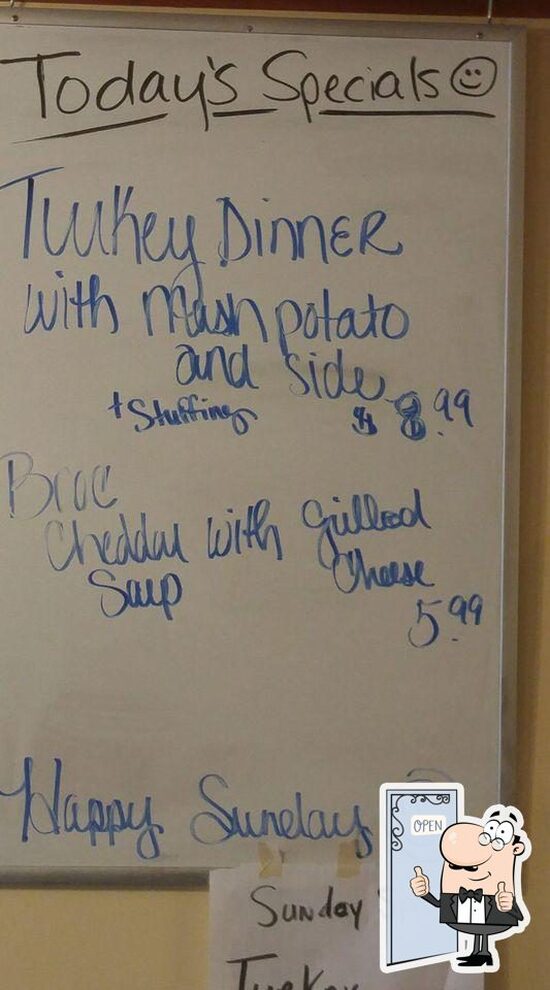 Today's Specials
Turkey Dinner
with Mash potato
and side
+ Stuffing $ 8.99
Broc
Cheddar with Grilled
Soup Cheese
5.99
Happy Sunday
OPEN
Sunday
Turkey